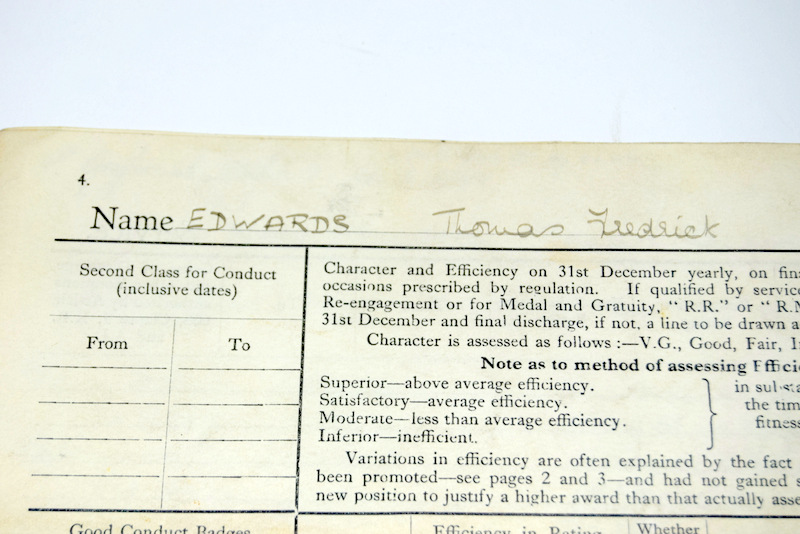 4.
Name EDWARDS Thomas Fredrick
Second Class for Conduct
(inclusive dates)
From To
Character and Efficiency on 31st December yearly, on
occasions prescribed by regulation. If qualified by
Re-engagement or for Medal and Gratuity, "R.R." or
31st December and final discharge, if not, a line to be drawn
Character is assessed as follows :—V.G., Good, Fair,
Note as to method of assessing
Superior—above average efficiency.
Satisfactory—average efficiency.
Moderate—less than average efficiency.
Inferior—inefficient.
in
the
fitness
Variations in efficiency are often explained by the fact
been promoted—see pages 2 and 3—and had not gained
new position to justify a higher award than that actually
Good Conduct Badges
Efficiency in Rating
Whether